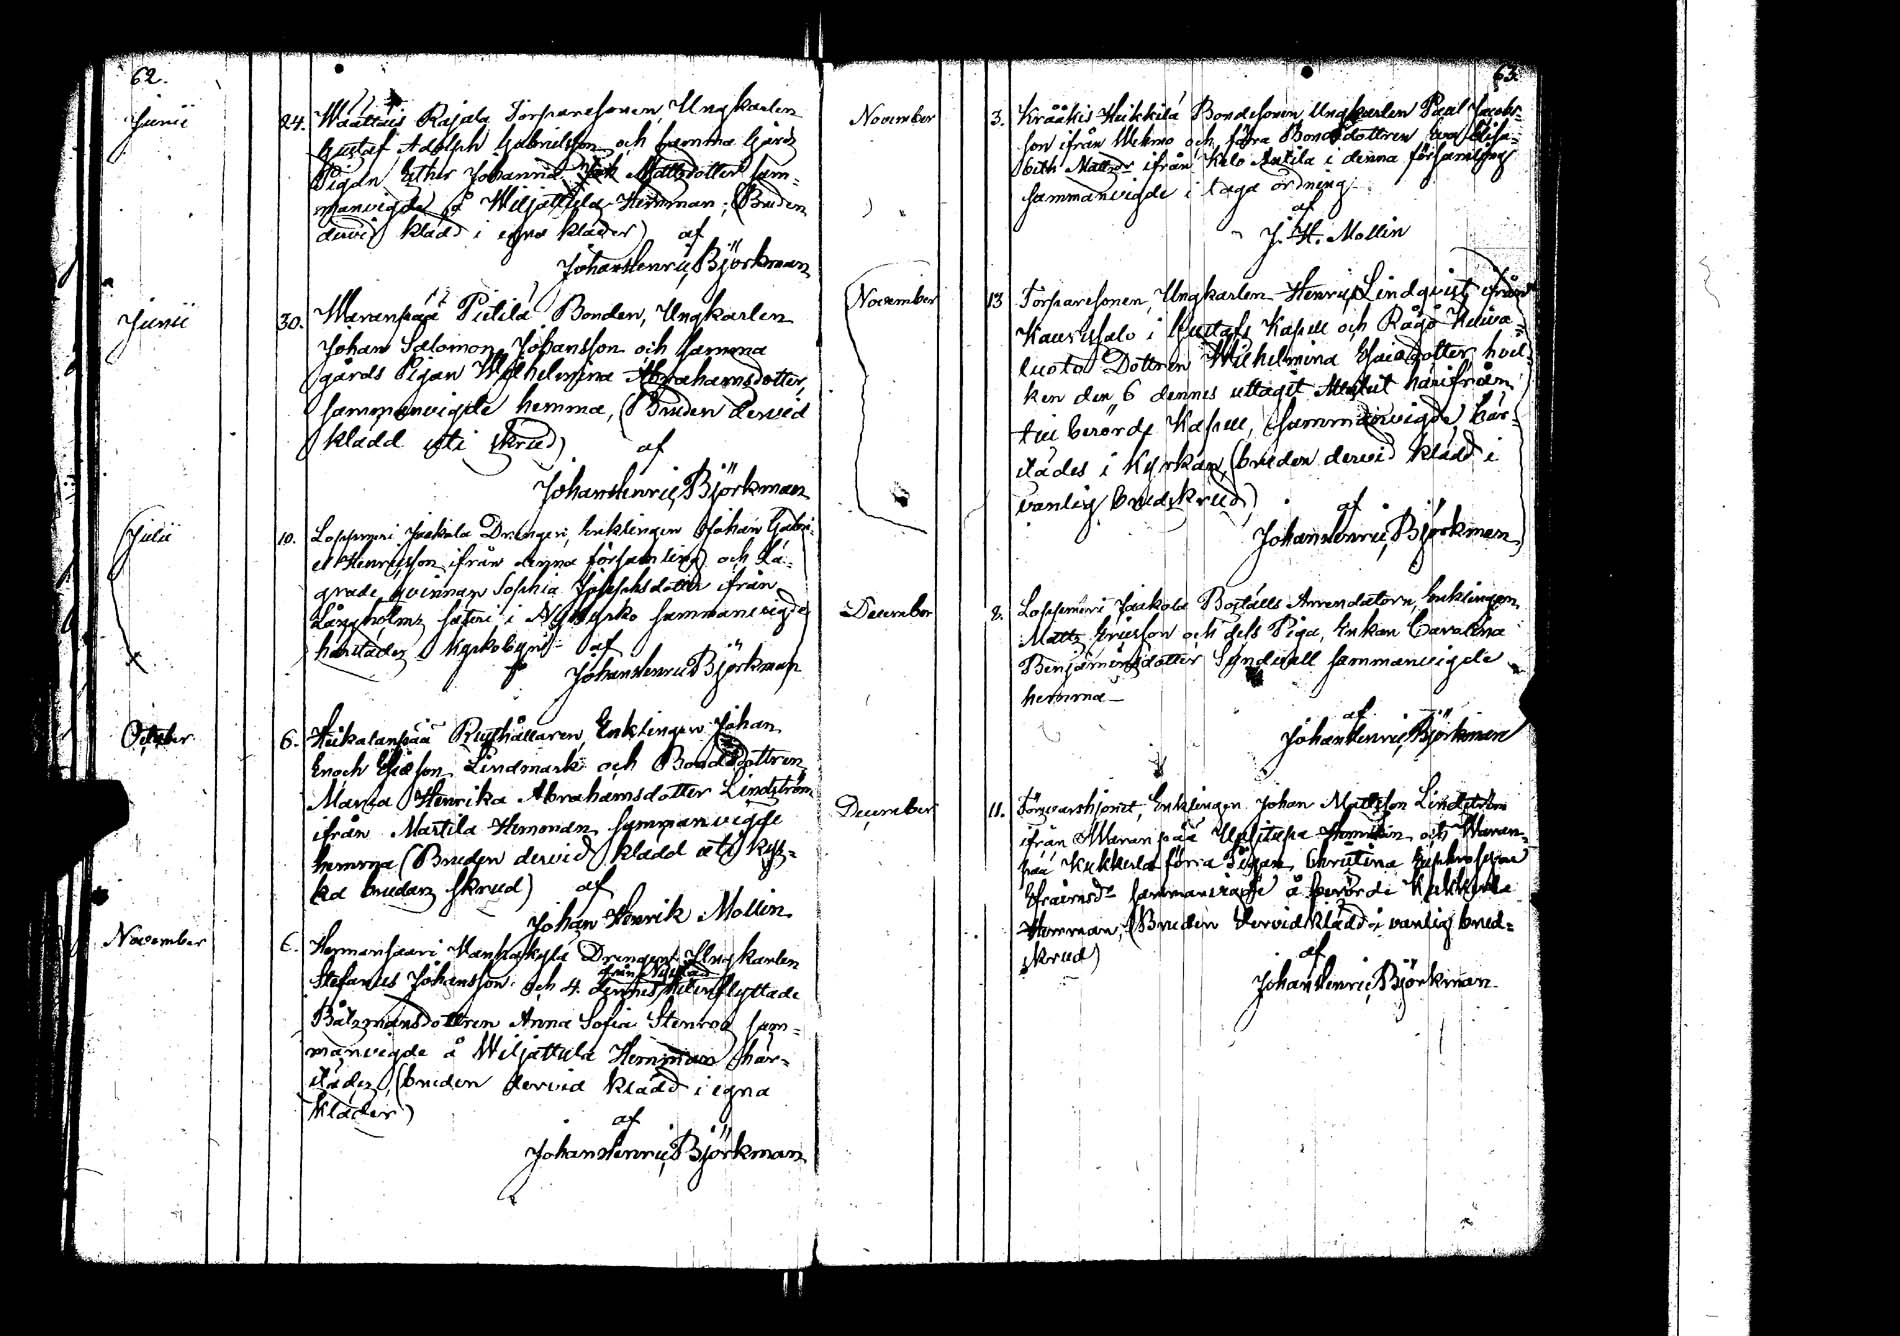 62.
Junii 24. Waattais Rajala Torparesonen, Ungkarlen
Gustaf Adolph Gabrielsson och samma Gårds
Pigan Esther Johanna Mattsdotter sam-
manvigde på Wiljattula Hemman; (Bruden
dervid klädd i egna kläder) af
Johan Henric Björkman
Junii 30. Waranpää Pietilä Bonden, Ungkarlen
Johan Salomon Johansson och samma
gårds Pigan Wilhelmina Abrahamsdotter,
sammanvigde hemma, (Bruden dervid
klädd uti skrud) af
Johan Henric Björkman
Julii 10. Loppmeri Jaakola Drengen, Enklingen Johan Gabri-
el Henricsson ifrån denna församling och Lä-
grade qvinnan Sophia Josephsdotter ifrån
Långholms säteri i Nykyrko sammanvigde
härstädes Kyrkobyni af
Johan Henric Björkman
October 6. Heikalanpää Rusthållaren, Enklingen Johan
Enoch Esiasson Lindmark och Bondedottren
Maria Henrika Abrahamsdotter Lindström
ifrån Martila Hemman sammanvigde
hemma (Bruden dervid klädd uti kyr-
ko brudars skrud) af
Johan Henrik Mollin
November 6. Hermansaari Vanhakylä Drengen, Ungkarlen
från Nystad
Stefanus Johansson och 4. dennes hitenflyttade
Båtzmansdottren Anna Sofia Stenroos sam-
manvigde å Wiljattula Hemman här-
städes, (bruden dervid klädd i egna
kläder)
af
Johan Henric Björkman
63.
November 3. Krääkis Heikkilä Bondesonen, Ungkarlen Paul Jacobs-
son ifrån Wekmo och förra Bondedottren Eva Elisa-
beth Mattsdr ifrån Kelo Antila i denna församling
sammanvigde i laga ordning
af
J. H. Mollin
November 13 Torparesonen, Ungkarlen Henric Lindqvist ifrån
Kaurissalo i Gustafs Kapell och Rågö Heliva-
luoto Dottren Wilhelmina Esaiædotter hvil-
ken den 6 dennes uttagit Attest härifrån
till berörde Kapell, sammanvigde här-
städes i Kyrkan, (bruden dervid klädd i
vanlig brudskrud)
af
Johan Henric Björkman
December 8. Loppmeri Jaakola Boställs Arrendatorn, Enklingen
Matts Ericsson och dess Piga, Enkan Carolina
Benjaminsdotter Syndvall sammanvigde
hemma
af
Johan Henric Björkman
December 11. Försvarshjonet, Enklingen Johan Mattsson Lindström
ifrån Waranpää Ylsitupa Hemman och Waran-
pää Kukkula förra Pigan Christina Euphrosyna
Efraimsdr sammanvigde å berörde Kukkula
Hemman, (Bruden dervid klädd i vanlig brud-
skrud)
af
Johan Henric Björkman